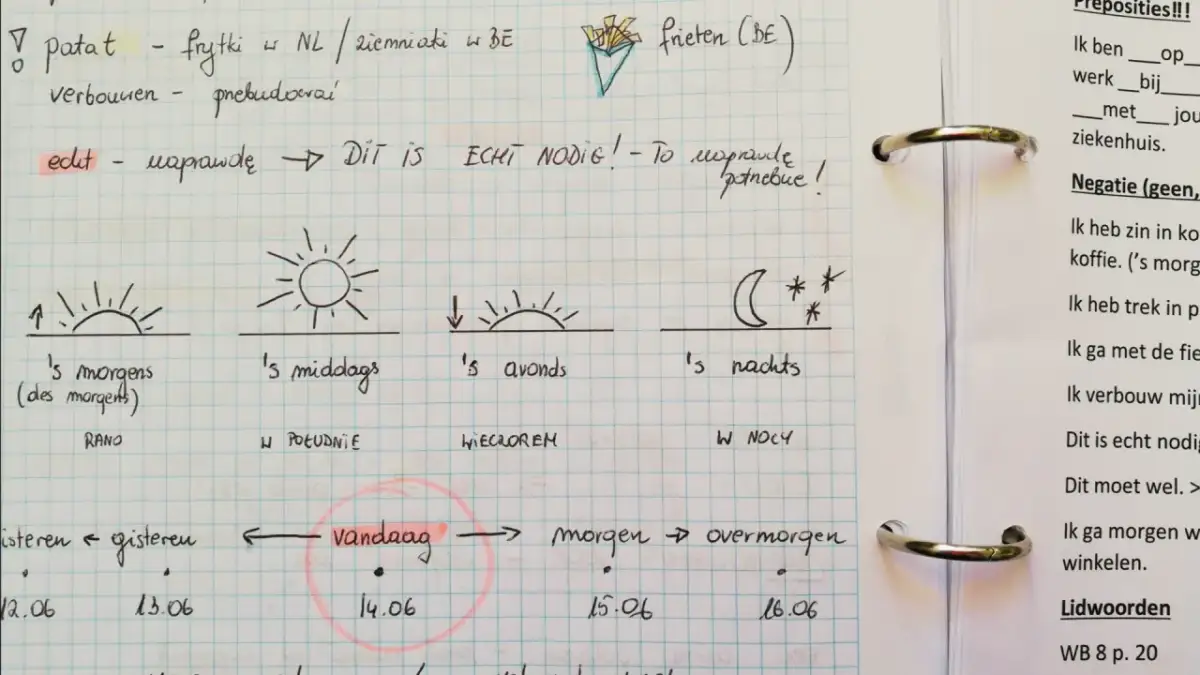 ! patat - frytki w NL / ziemniaki w BE
frieten (BE)
verbouwen - przebudować
echt - naprawdę → DIT IS ECHT NODIG! - To naprawdę
potrzebne!
's morgens
(des morgens)
RANO
's middags
W POŁUDNIE
's avonds
WIECZOREM
's nachts
W NOCY
isteren ← gisteren ← vandaag → morgen → overmorgen
12.06 13.06 14.06 15.06 16.06
Preposities!!!
Ik ben ___op_
werk __bij____
___met___ jou
ziekenhuis.
Negatie (geen,
Ik heb zin in ko
koffie. ('s morg
Ik heb trek in p
Ik ga met de fie
Ik verbouw mij
Dit is echt nodi
Dit moet wel. >
Ik ga morgen w
winkelen.
Lidwoorden
WB 8 p. 20